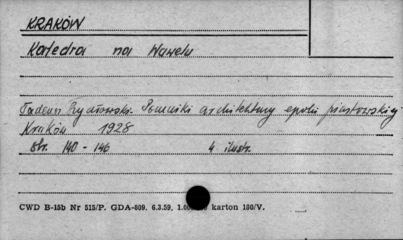 KRAKÓW
Katedra na Wawelu
Tadeusz Szydłowski. Pomniki architektury epoki piastowskiej
Kraków 1928
Str. 140 - 146 4 ilustr.
CWD B-15b Nr 515/P. GDA-809. 6.3.59. karton 180/V.